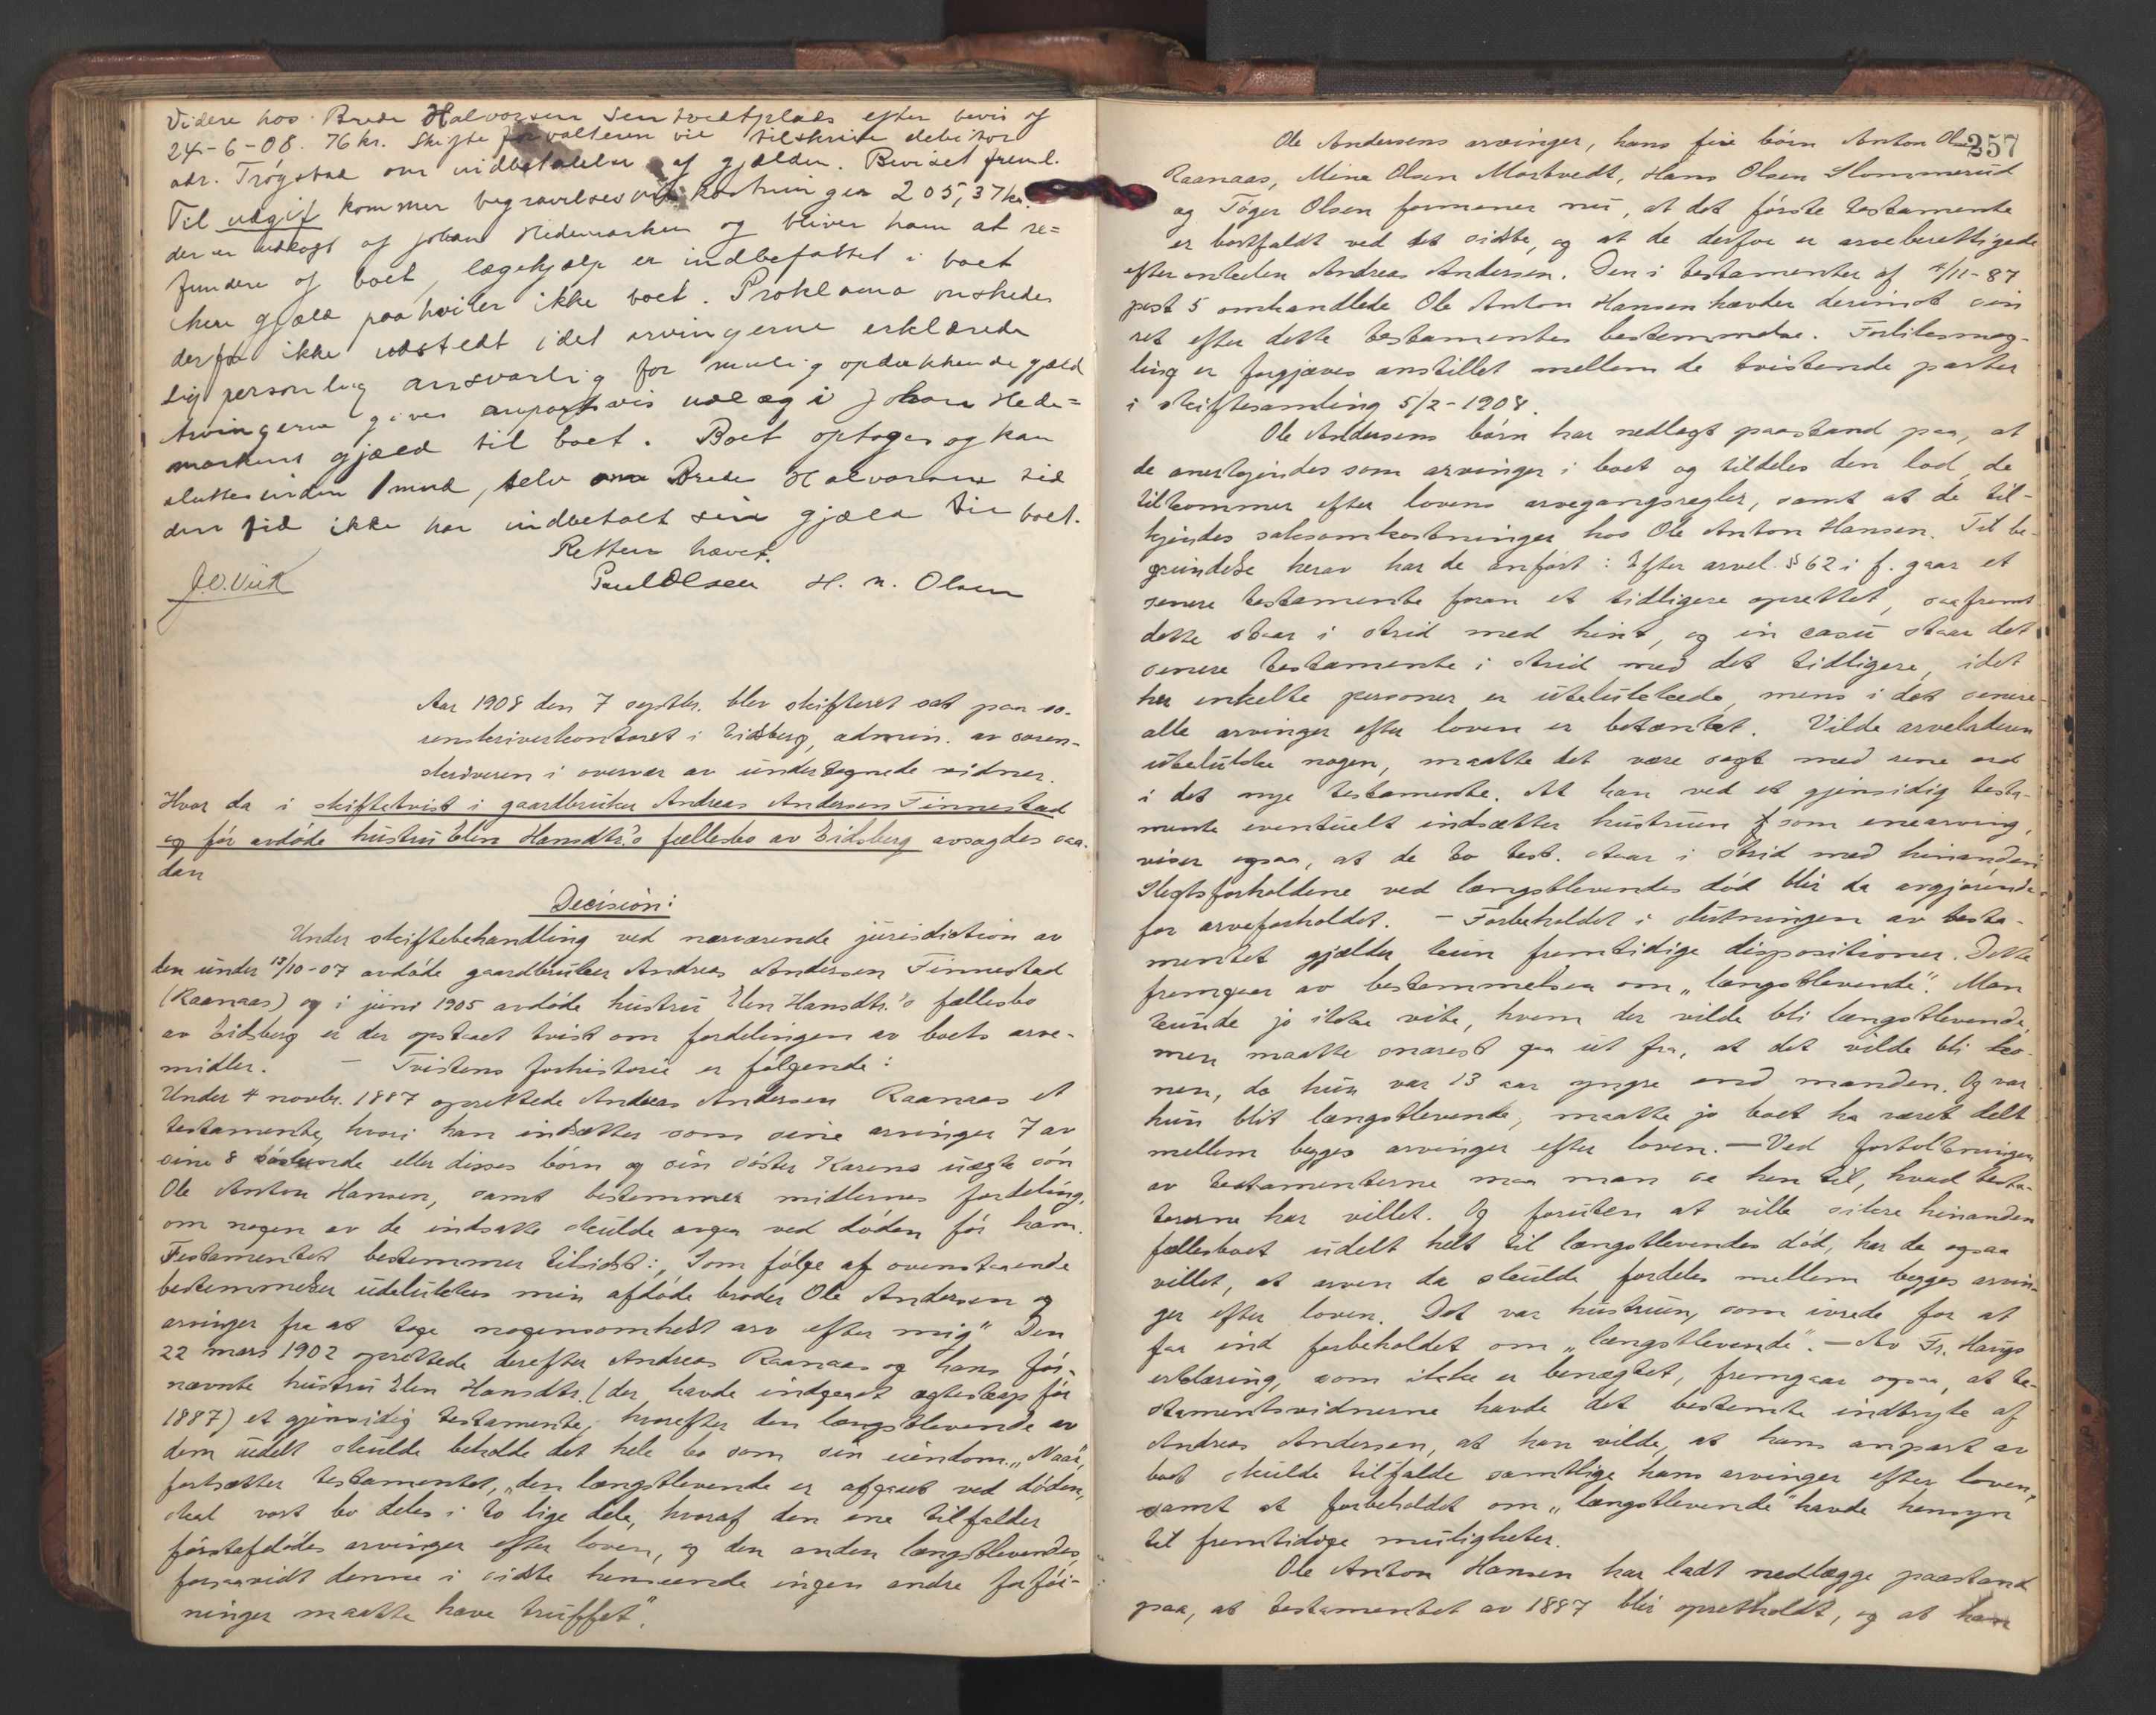 Videre hos Brede Halvorsen Sentvedtplads efter bevis af
24-6-08. 76 kr. Skifteforvalteren vil tilskrive debitor
adr. Trøgstad om indbetalelse af gjælden. Beviset freml.
Til udgift kommer begravelsesomkostninger 205,37 kr.
der er udlagt af Johan Hedemarken og bliver ham at re=
fundere af boet, lægehjælp er indbefattet i boet
hen gjæld paahviler ikke boet. Proklama ønskedes
derfor ikke udstedt idet arvingerne erklærede
sig personlig ansvarlig for mulig opdukkende gjæld
Arvingerne gives anpartsvis udlæg i Johan Hede=
markens gjæld til boet. Boet optages og kan
sluttes inden 1 mnd, selv om Brede Halvorsen ved
den tid ikke har indbetalt sin gjæld til boet.
Retten hævet.
J.O. Vik Paul Olsen H. N. Olsen
Aar 1908 den 7 septbr. blev skifteret sat paa so-
renskriverkontoret i Eidsberg, admin. av soren-
skriveren i overvær av undertegnede vidner.
Hvor da i skiftetvist i gaardbruker Andreas Andersen Finnestad
og før avdøde hustru Elen Hansdtr.'s fællesbo av Eidsberg avsagdes saa-
dan
Decision:
Under skiftebehandling ved nærværende jurisdiction av
den under 13/10-07 avdøde gaardbruker Andreas Andersen Finnestad
(Raanaas) og i juni 1905 avdøde hustru Elen Hansdtr.'s fællesbo
av Eidsberg er der opstaaet tvist om fordelingen av boets arve-
midler. – Tvistens forhistorie er følgende:
Under 4 novbr. 1887 oprettede Andreas Andersen Raanaas et
testamente, hvori han indsætter som sine arvinger 7 av
sine 8 søskende eller disses børn og sin søster Karens uægte søn
Ole Anton Hansen, samt bestemmer midlernes fordeling,
om nogen av de indsatte skulde avgaa ved døden før ham.
Testamentet bestemmer tilsidst: „Som følge af ovenstaaende
bestemmelser udelukkes min afdøde broder Ole Andersen og
arvinger fra at tage nogensomhelst arv efter mig" Den
22 mars 1902 oprettede derefter Andreas Raanaas og hans før-
nævnte hustru Elen Hansdtr. (der havde indgaaet ægteskap før
1887) et gjensidig testamente, hvorefter den længstlevende av
dem udelt skulde beholde det hele bo som sin eiendom. „Naar",
fortsætter testamentet, „den længstlevende er afgaaet ved døden,
skal vort bo deles i to lige dele, hvoraf den ene tilfalder
førstafdødes arvinger efter loven, og den anden længstlevendes,
forsaavidt denne i sidste henseende ingen andre forføi-
ninger maatte have truffet".
257
Ole Andersens arvinger, hans fire børn Anton Olsen
Raanaas, Mina Olsen Mostvedt, Hans Olsen Slommerud
og Tøger Olsen formener nu, at det første testamente
er bortfaldt ved det sidste, og at de derfor er arveberettigede
efter onkelen Andreas Andersen. Den i testamentet af 4/11-87
post 5 omhandlede Ole Anton Hansen hævder derimot sin
ret efter dette testamentes bestemmelse. Forliksmæg-
ling er forgjæves anstillet mellem de tvistende parter
i skiftesamling 5/2-1908.
Ole Andersens børn har nedlagt paastand paa, at
de anerkjendes som arvinger i boet og tildeles den lod, de
tilkommer efter lovens arvegangsregler, samt at de til-
kjendes saksomkostninger hos Ole Anton Hansen. Til be-
grundelse herav har de anført: Efter arvel. § 62 i f. gaar et
senere testamente foran et tidligere oprettet, saafremt
dette staar i strid med hint, og in casu staar det
senere testamente i strid med det tidligere, idet
her enkelte personer er utelukkede, mens i det senere
alle arvinger efter loven er betænkt. Vilde arveladeren
utelukke nogen, maatte det være sagt med rene ord
i det nye testamente. At han ved et gjensidig testa-
mente eventuelt indsætter hustruen som enearving,
viser ogsaa, at de to test. staar i strid med hinanden.
Slegtsforholdene ved længstlevendes død blir da avgjørende
for arveforholdet. – Forbeholdet i slutningen av testa-
mentet gjælder kun fremtidige dispositioner. Dette
fremgaar av bestemmelsen om „længstlevende". Man
kunde jo ikke vite, hvem der vilde bli længstlevende,
men maatte snarest gaa ut fra, at det vilde bli ko-
nen, da hun var 13 aar yngre end manden. Og var
hun blit længstlevende, maatte jo boet ha været delt
mellem begges arvinger efter loven. – Ved fortolkningen
av testamenterne maa man se hen til, hvad testa-
torerne har villet. Og foruten at ville sikre hinanden
fællesboet udelt helt til længstlevendes død, har de ogsaa
villet, at arven da skulde fordeles mellem begges arvin-
ger efter loven. Det var hustruen, som ivrede for at
faa ind forbeholdet om „længstlevende". – Av Fr. Haugs
erklæring, som ikke er benægtet, fremgaar ogsaa, at te-
stamentsvidnerne havde det bestemte indtryk af
Andreas Andersen, at han vilde, at hans anpart av
boet skulde tilfalde samtlige hans arvinger efter loven,
samt at forbeholdet om „længstlevende" havde hensyn
til fremtidige muligheter.
Ole Anton Hansen har ladt nedlægge paastand
paa, at testamentet av 1887 blir opretholdt, og at han